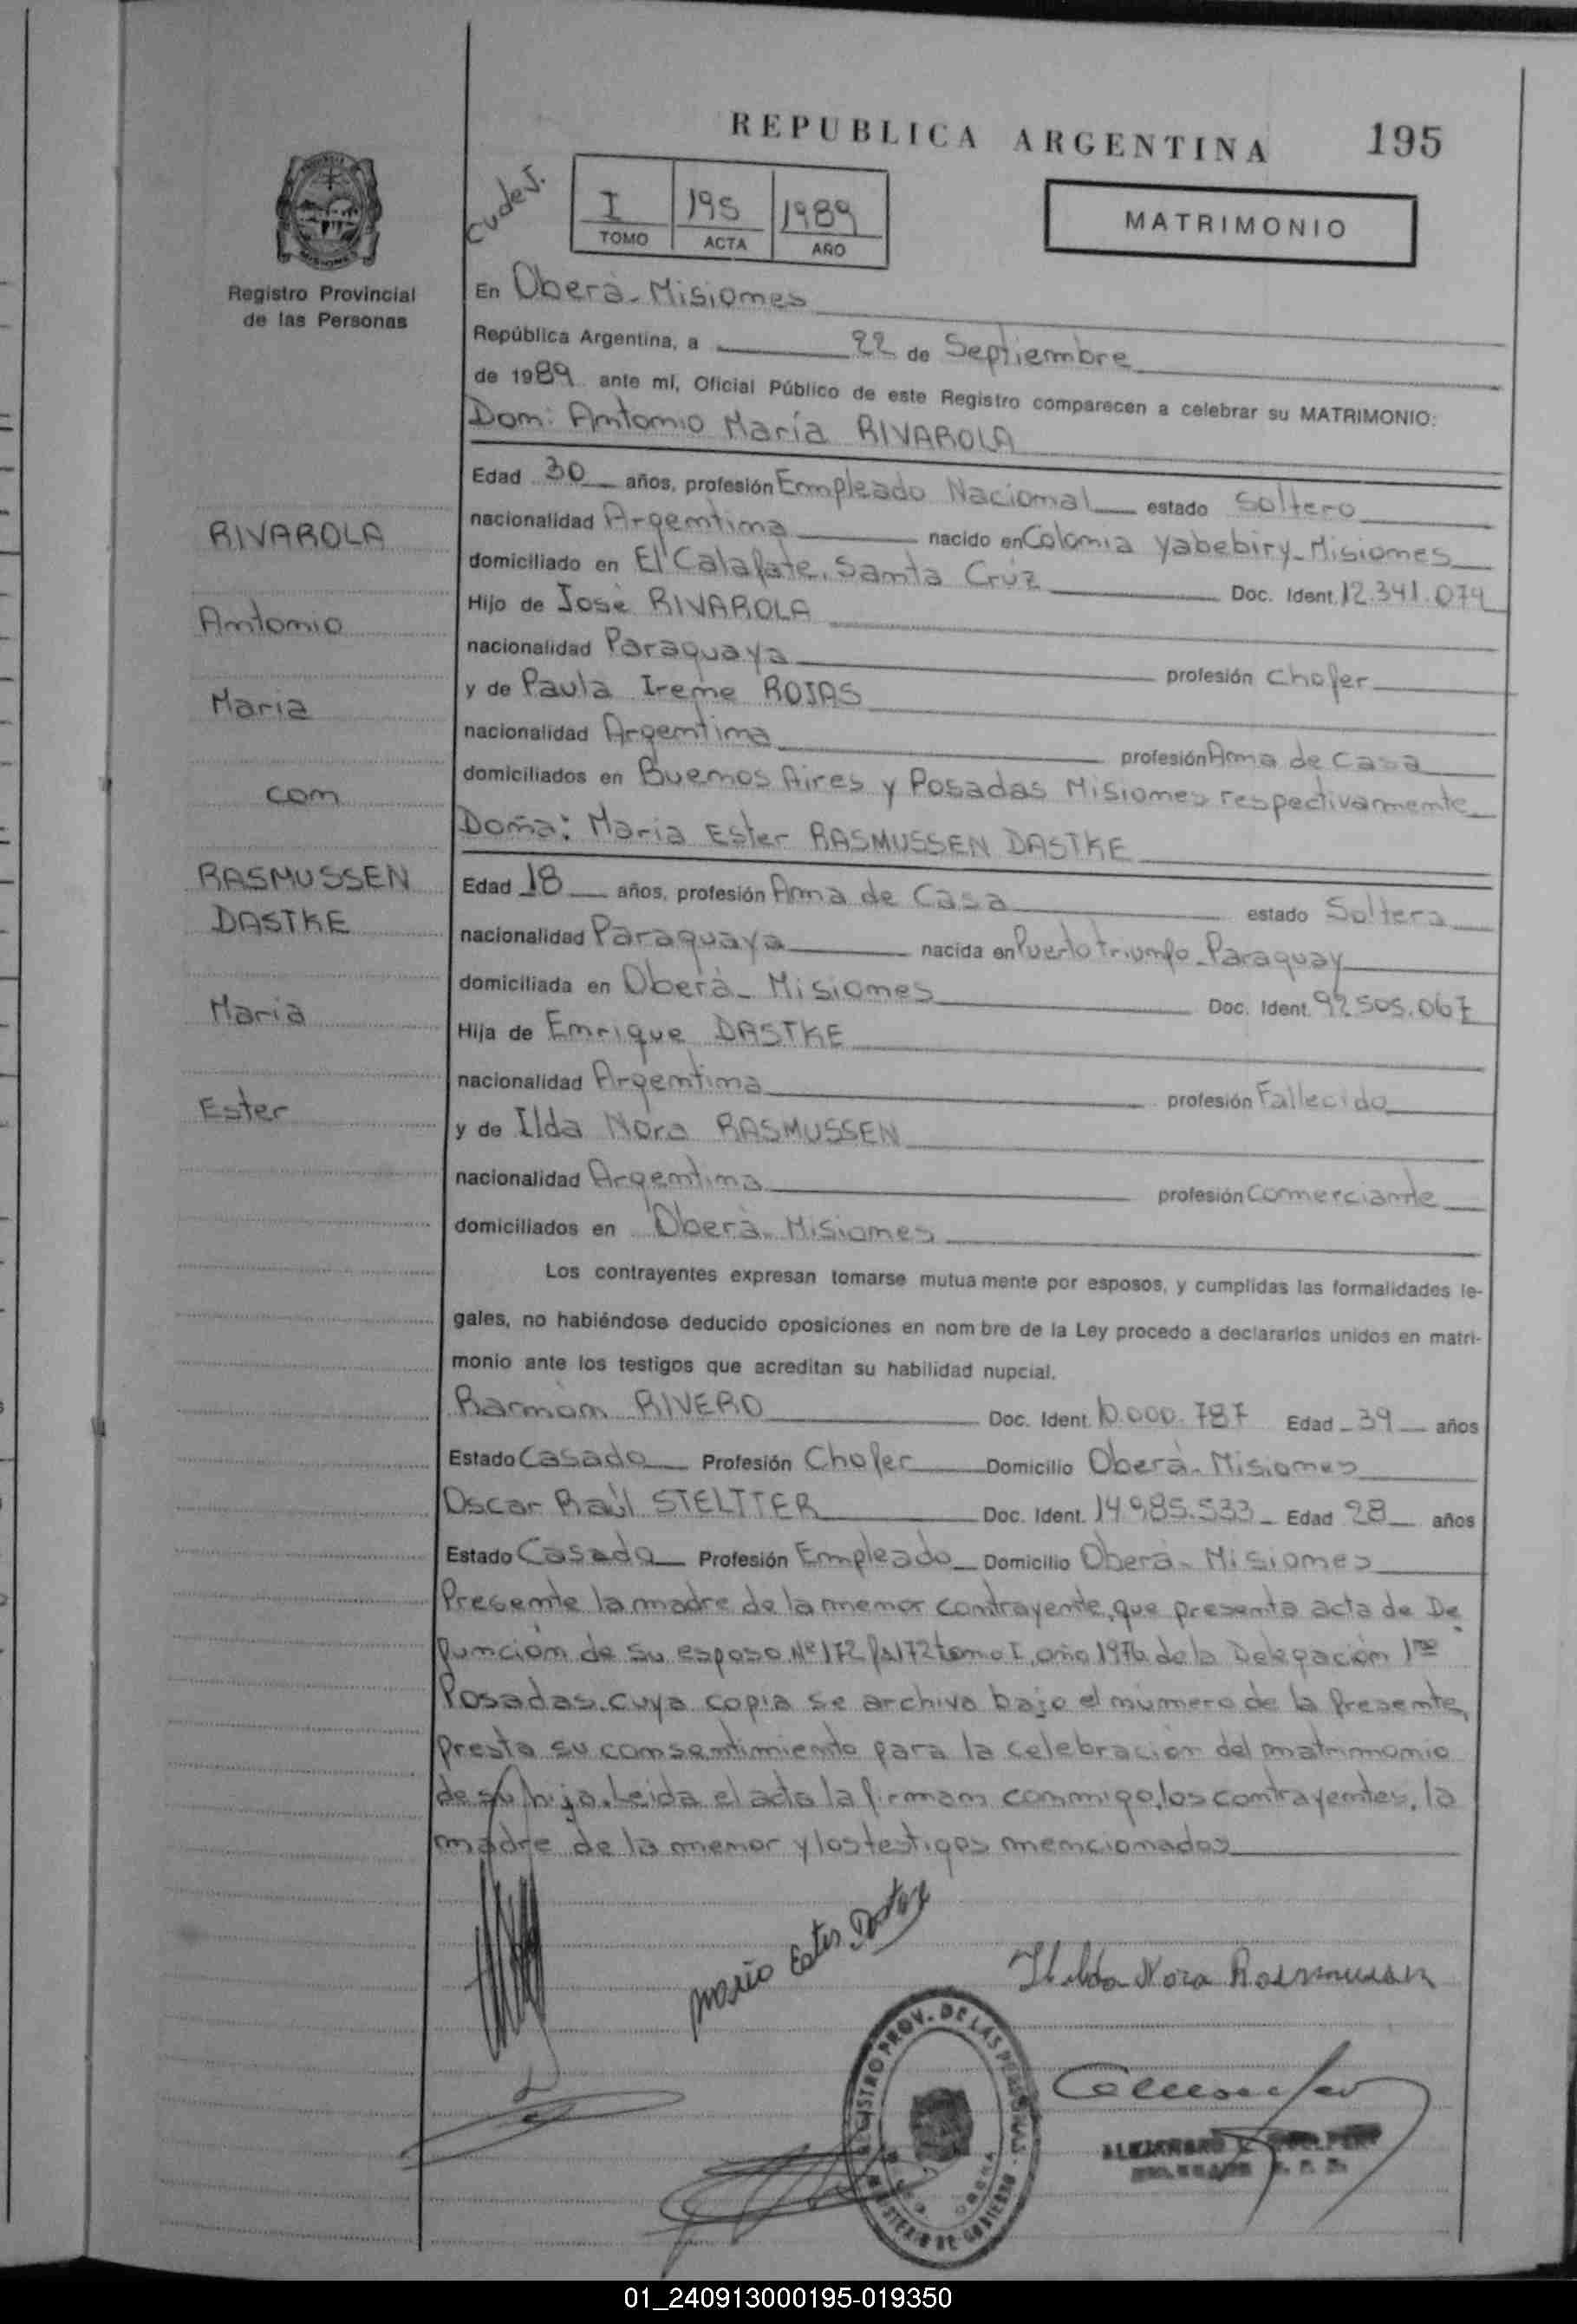 REPUBLICA ARGENTINA 195
I 195 1989
TOMO ACTA AÑO
MATRIMONIO
Registro Provincial
de las Personas
En Oberà - Misiones
República Argentina, a 22 de Septiembre
de 1989 ante mí, Oficial Público de este Registro comparecen a celebrar su MATRIMONIO:
Don: Antonio María RIVAROLA
Edad 30 años, profesión Empleado Nacional estado Soltero
nacionalidad Argentina nacido en Colonia Yabebiry - Misiones
domiciliado en El Calafate, Santa Crúz Doc. Ident. 12.341.074
Hijo de Josè RIVAROLA
nacionalidad Paraguaya profesión Chofer
y de Paula Irene ROJAS
nacionalidad Argentina profesión Ama de Casa
domiciliados en Buenos Aires y Posadas Misiones respectivamente
Doña: Maria Ester RASMUSSEN DASTKE
Edad 18 años, profesión Ama de Casa estado Soltera
nacionalidad Paraguaya nacida en Puerto triunfo - Paraguay
domiciliada en Oberà - Misiones Doc. Ident. 92.505.067
Hija de Enrique DASTKE
nacionalidad Argentina profesión Fallecido
y de Ilda Nora RASMUSSEN
nacionalidad Argentina profesión Comerciante
domiciliados en Oberà - Misiones
RIVAROLA
Antonio
Maria
con
RASMUSSEN
DASTKE
Maria
Ester
Los contrayentes expresan tomarse mutuamente por esposos, y cumplidas las formalidades le-
gales, no habiéndose deducido oposiciones en nombre de la Ley procedo a declararlos unidos en matri-
monio ante los testigos que acreditan su habilidad nupcial.
Ramòn RIVERO Doc. Ident. 10.000.787 Edad 39 años
Estado Casado Profesión Chofer Domicilio Oberà - Misiones
Oscar Raùl STELTTER Doc. Ident. 14.985.533 Edad 28 años
Estado Casado Profesión Empleado Domicilio Oberà - Misiones
Presente la madre de la menor contrayente, que presenta acta de De
funciòn de su esposo Nº 172 fs 172 tomo I, año 1976 de la Delegaciòn 1ra
Posadas, cuya copia se archiva bajo el número de la presente,
presta su consentimiento para la celebraciòn del matrimonio
de su hija. Leida el acta la firman conmigo, los contrayentes, la
madre de la menor y los testigos mencionados
Maria Ester Dastke
Ilda Nora Rasmussen
REGISTRO PROV. DE LAS PERSONAS
MINISTERIO DE GOBIERNO
01_240913000195-019350